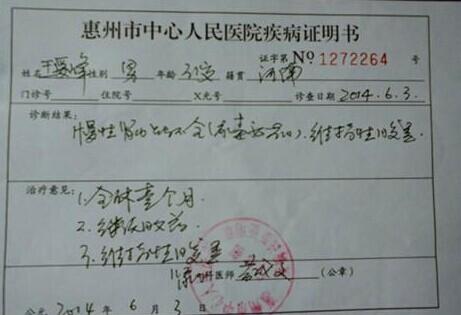 惠州市中心人民医院疾病证明书
证字第 No 1272264 号
姓名 性别 男 年龄 籍贯 河南
门诊号 住院号 X光号 诊查日期 2014.6.3
诊断结果:
慢性肾功能不全(尿毒症期).维持性血透
治疗意见:
1.全休壹个月
2.继续服药
3.维持性血透
科医师 (公章)
公元 2014 年 6 月 3 日